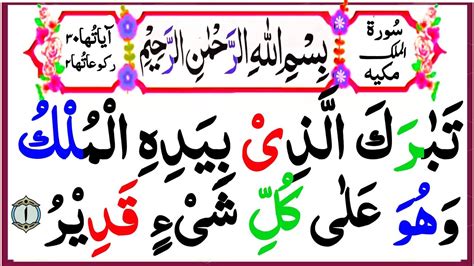 سُورة الملك مكيه
بِسْمِ اللهِ الرَّحْمٰنِ الرَّحِيْمِ
آيَاتُها ٣٠ ركوعاتُها ٢
تَبٰرَكَ الَّذِىْ بِيَدِهِ الْمُلْكُ
وَهُوَ عَلٰى كُلِّ شَىْءٍ قَدِيْرُ ١